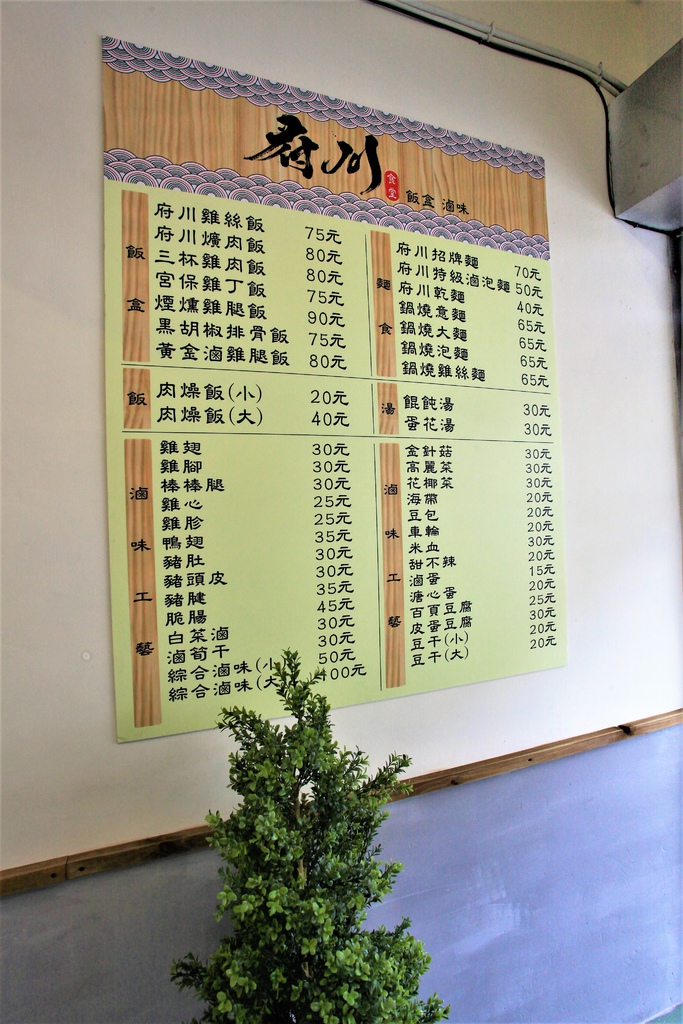 府川
食堂
飯盒 滷味
飯盒
府川雞絲飯 75元
府川爌肉飯 80元
三杯雞肉飯 80元
宮保雞丁飯 75元
煙燻雞腿飯 90元
黑胡椒排骨飯 75元
黃金滷雞腿飯 80元
麵食
府川招牌麵 70元
府川特級滷泡麵 50元
府川乾麵 40元
鍋燒意麵 65元
鍋燒大麵 65元
鍋燒泡麵 65元
鍋燒雞絲麵 65元
飯
肉燥飯(小) 20元
肉燥飯(大) 40元
湯
餛飩湯 30元
蛋花湯 30元
滷味工藝
雞翅 30元
雞腳 30元
棒棒腿 30元
雞心 25元
雞胗 25元
鴨翅 35元
豬肚 30元
豬頭皮 30元
豬腱 35元
脆腸 45元
白菜滷 30元
滷筍干 30元
綜合滷味(小 50元
綜合滷味(大 100元
滷味工藝
金針菇 30元
高麗菜 30元
花椰菜 30元
海帶 20元
豆包 20元
車輪 20元
米血 30元
甜不辣 20元
滷蛋 15元
溏心蛋 20元
百頁豆腐 25元
皮蛋豆腐 30元
豆干(小) 20元
豆干(大) 20元